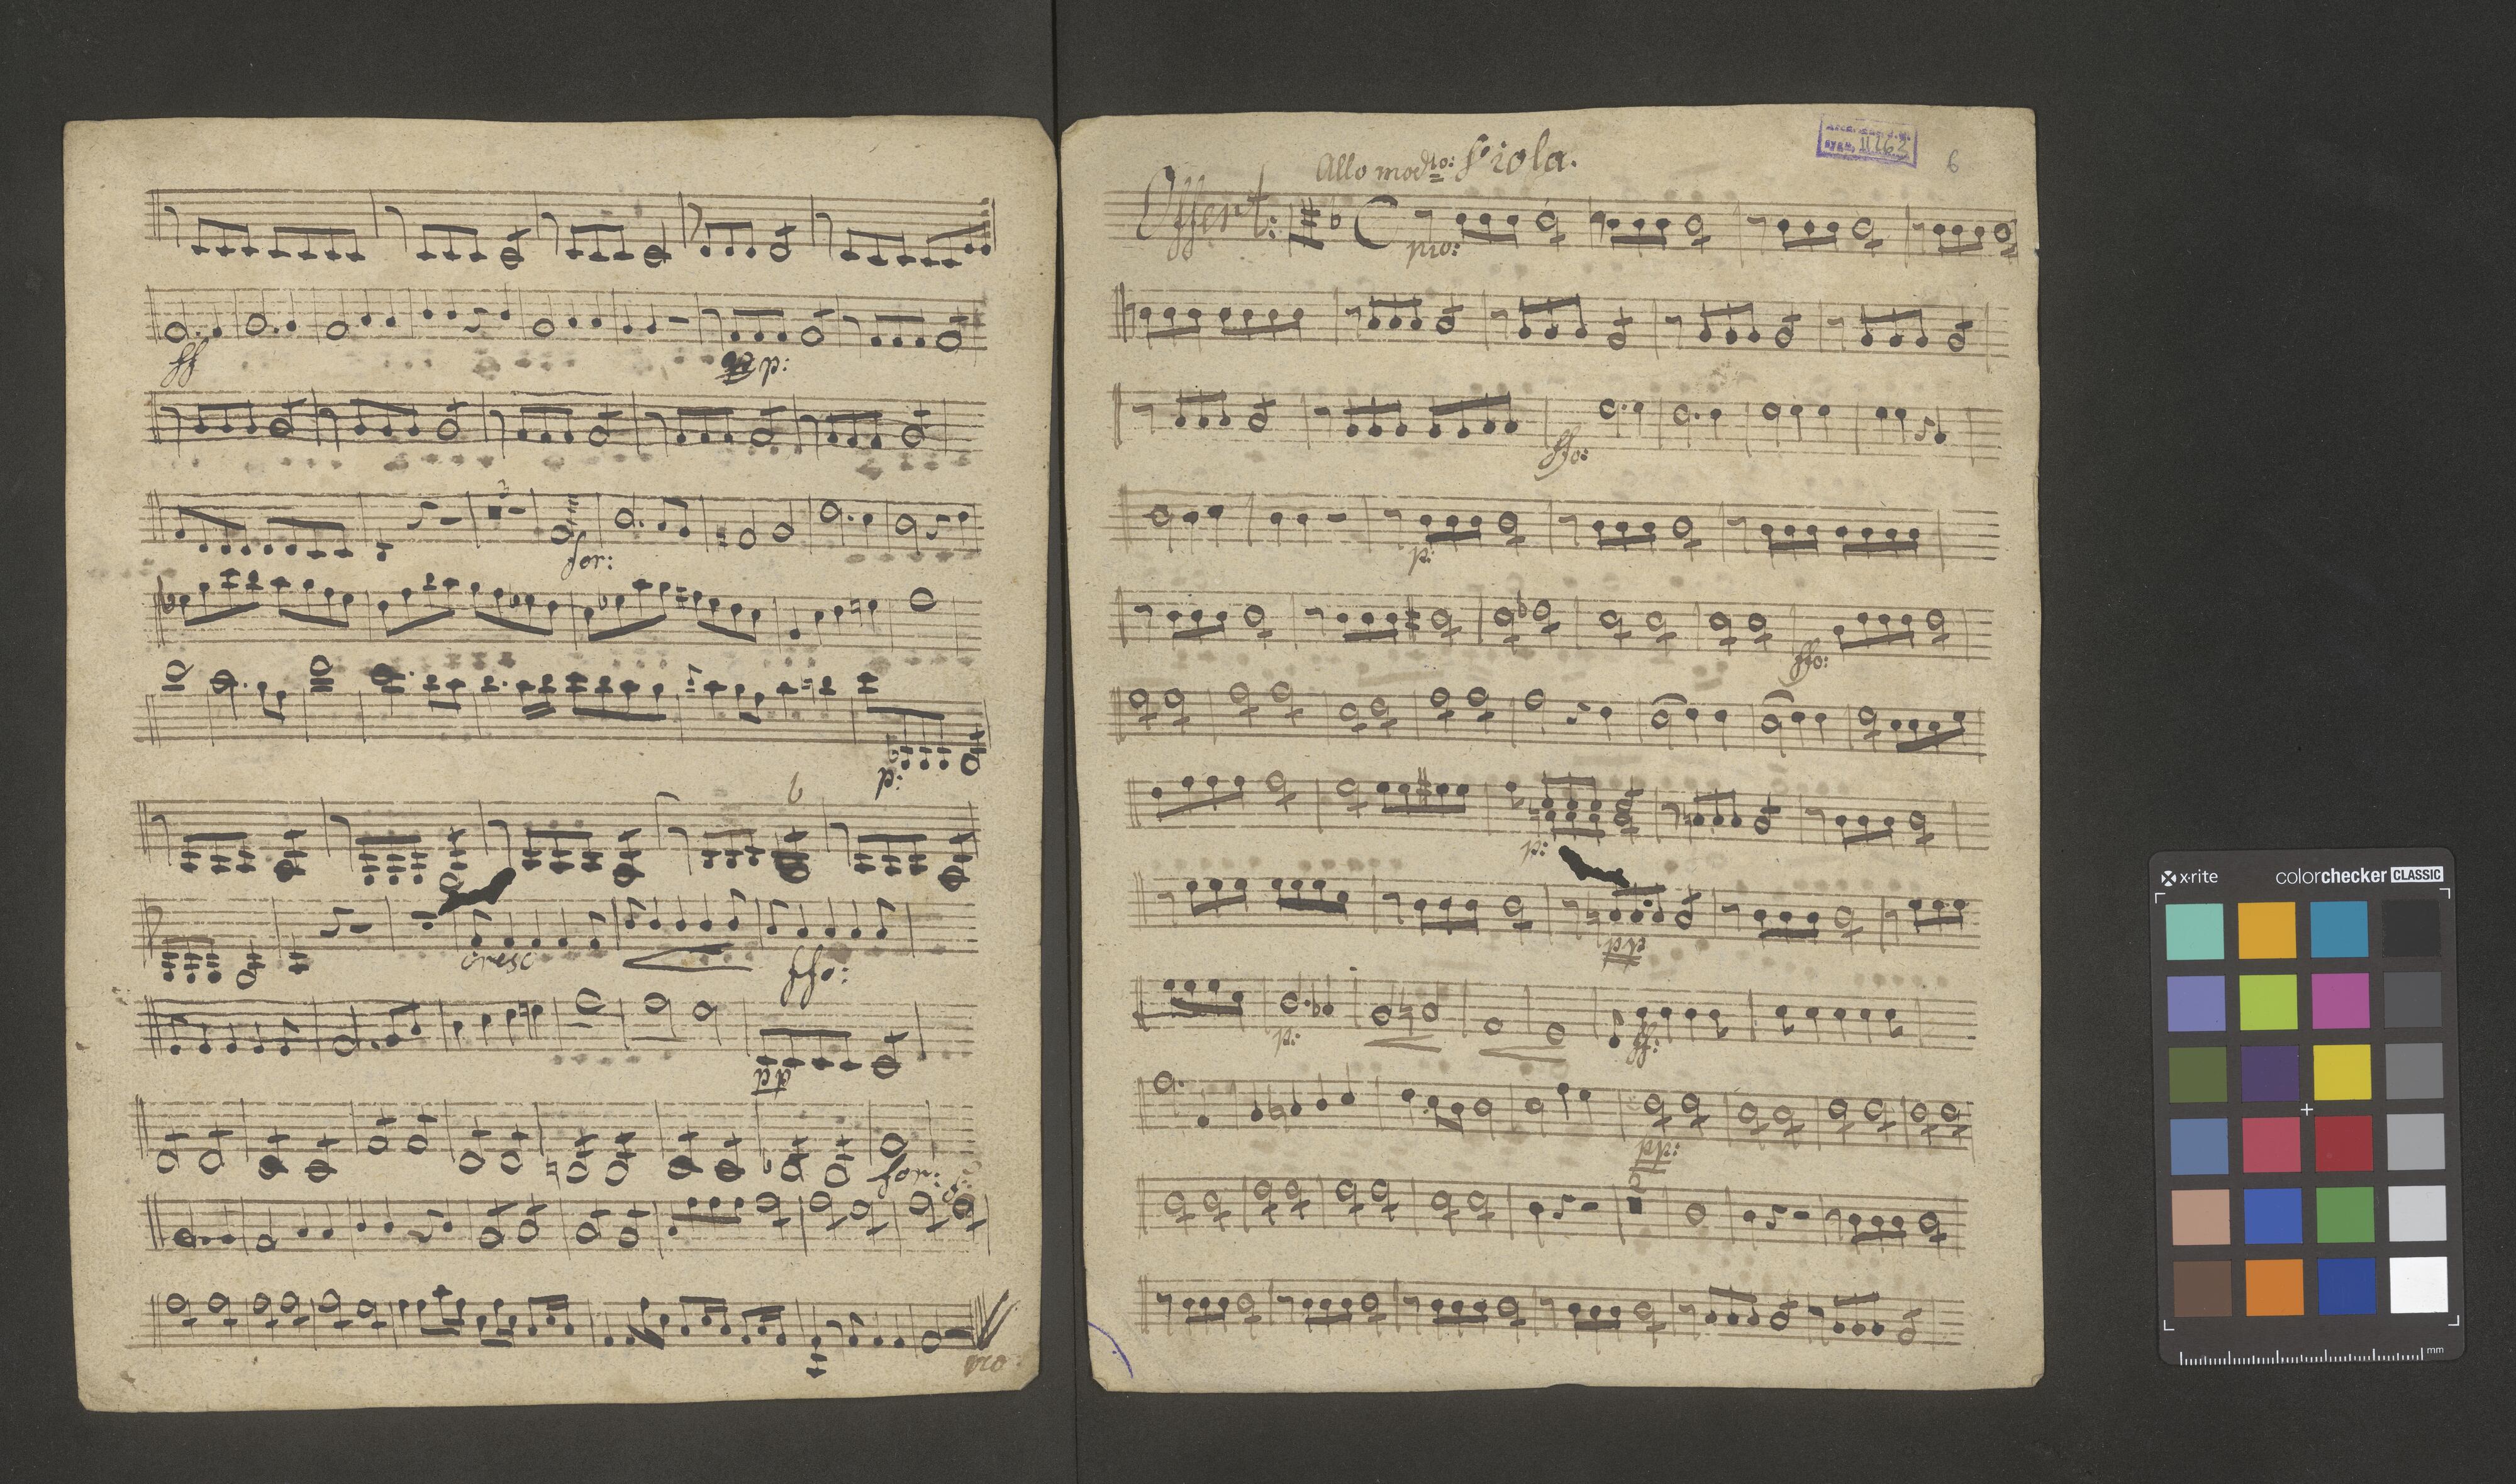 ff
p:
for:
p:
6
cresc
ffo:
pp
for:
Allo modto: Viola.
11763
6
Offert:
pio:
ffo:
p:
ffo:
p:
pp
p:
ff:
pp:
2
x-rite
colorchecker CLASSIC
mm